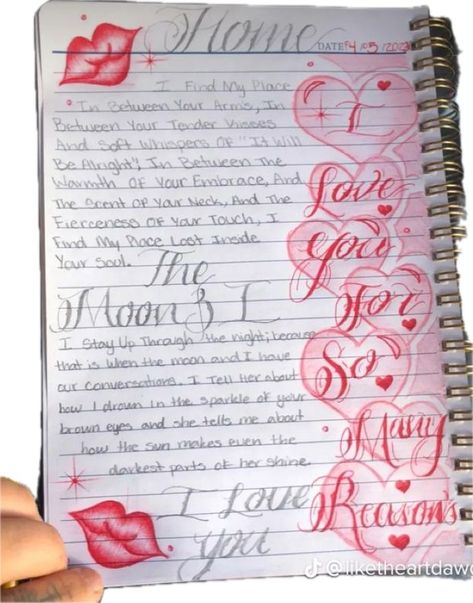 Home
DATE: 4/05/202
I Find My Place
In Between Your Arms, In
Between Your Tender Kisses
And Soft Whispers Of "It Will
Be Alright", In Between The
Warmth Of Your Embrace, And
The Scent Of Your Neck, And The
Fierceness Of Your Touch, I
Find My Place Lost Inside
Your Soul.
The
Moon & I
I Stay Up Through the night; because
that is when the moon and I have
our conversations. I Tell Her about
how I drown in the sparkle of your
brown eyes and she tells me about
how the sun makes even the
darkest parts of her shine.
I Love
you
I
Love
you
For
So
Many
Reason's
@liketheartdawg